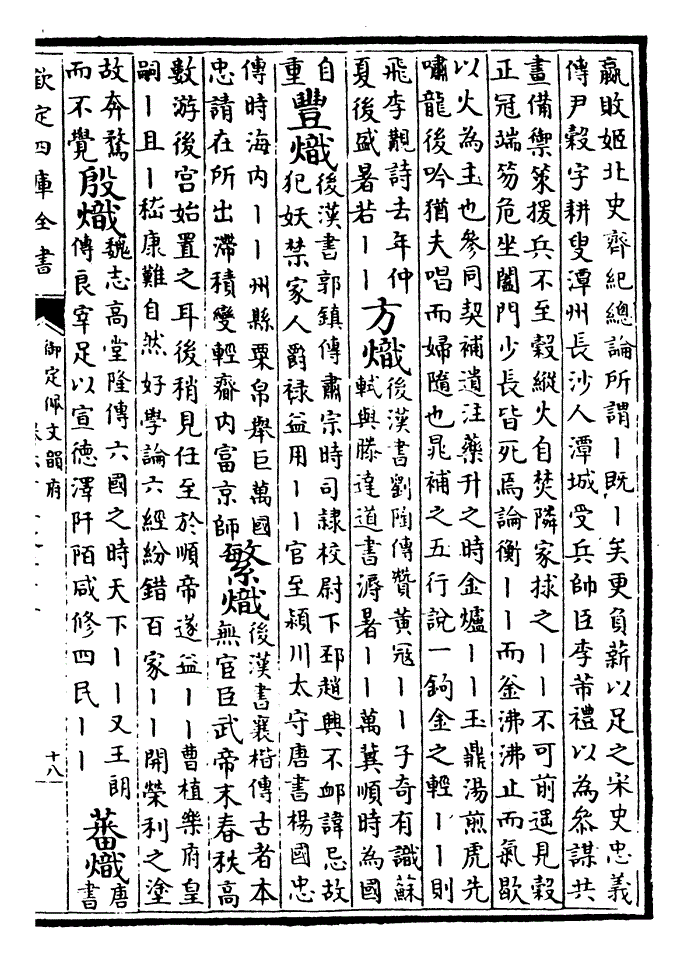 嬴敗姬北史齊紀總論所謂丨既丨矣更負薪以足之宋史忠義
傳尹穀字耕叟潭州長沙人潭城受兵帥臣李芾禮以為參謀共
畫備禦策援兵不至穀縱火自焚隣家捄之丨丨不可前遥見穀
正冠端笏危坐闔門少長皆死焉論衡丨丨而釜沸沸止而氣歇
以火為主也參同契補遺注藥升之時金爐丨丨玉鼎湯煎虎先
嘯龍後吟猶夫唱而婦隨也晁補之五行說一鉤金之輕丨丨則
飛李覯詩去年仲
夏後盛暑若丨丨
方熾
後漢書劉陶傳贊黃冠丨丨子奇有識蘇
軾與滕達道書溽暑丨丨萬冀順時為國
自
重
豐熾
後漢書郭鎮傳肅宗時司隸校尉下邳趙興不䘏諱忌故
犯妖禁家人爵禄益用丨丨官至潁川太守唐書楊國忠
傳時海内丨丨州縣粟帛舉巨萬國
忠請在所出滯積變輕齎内富京師
繁熾
後漢書襄楷傳古者本
無官臣武帝末春秋高
數游後宫始置之耳後稍見任至於順帝遂益丨丨曹植樂府皇
嗣丨且丨嵇康難自然好學論六經紛錯百家丨丨開榮利之塗
故奔騖
而不覺
殷熾
魏志高堂隆傳六國之時天下丨丨又王朗
傳良宰足以宣德澤阡陌咸修四民丨丨
蕃熾
唐
書
欽定四庫全書
御定佩文韻府
十八